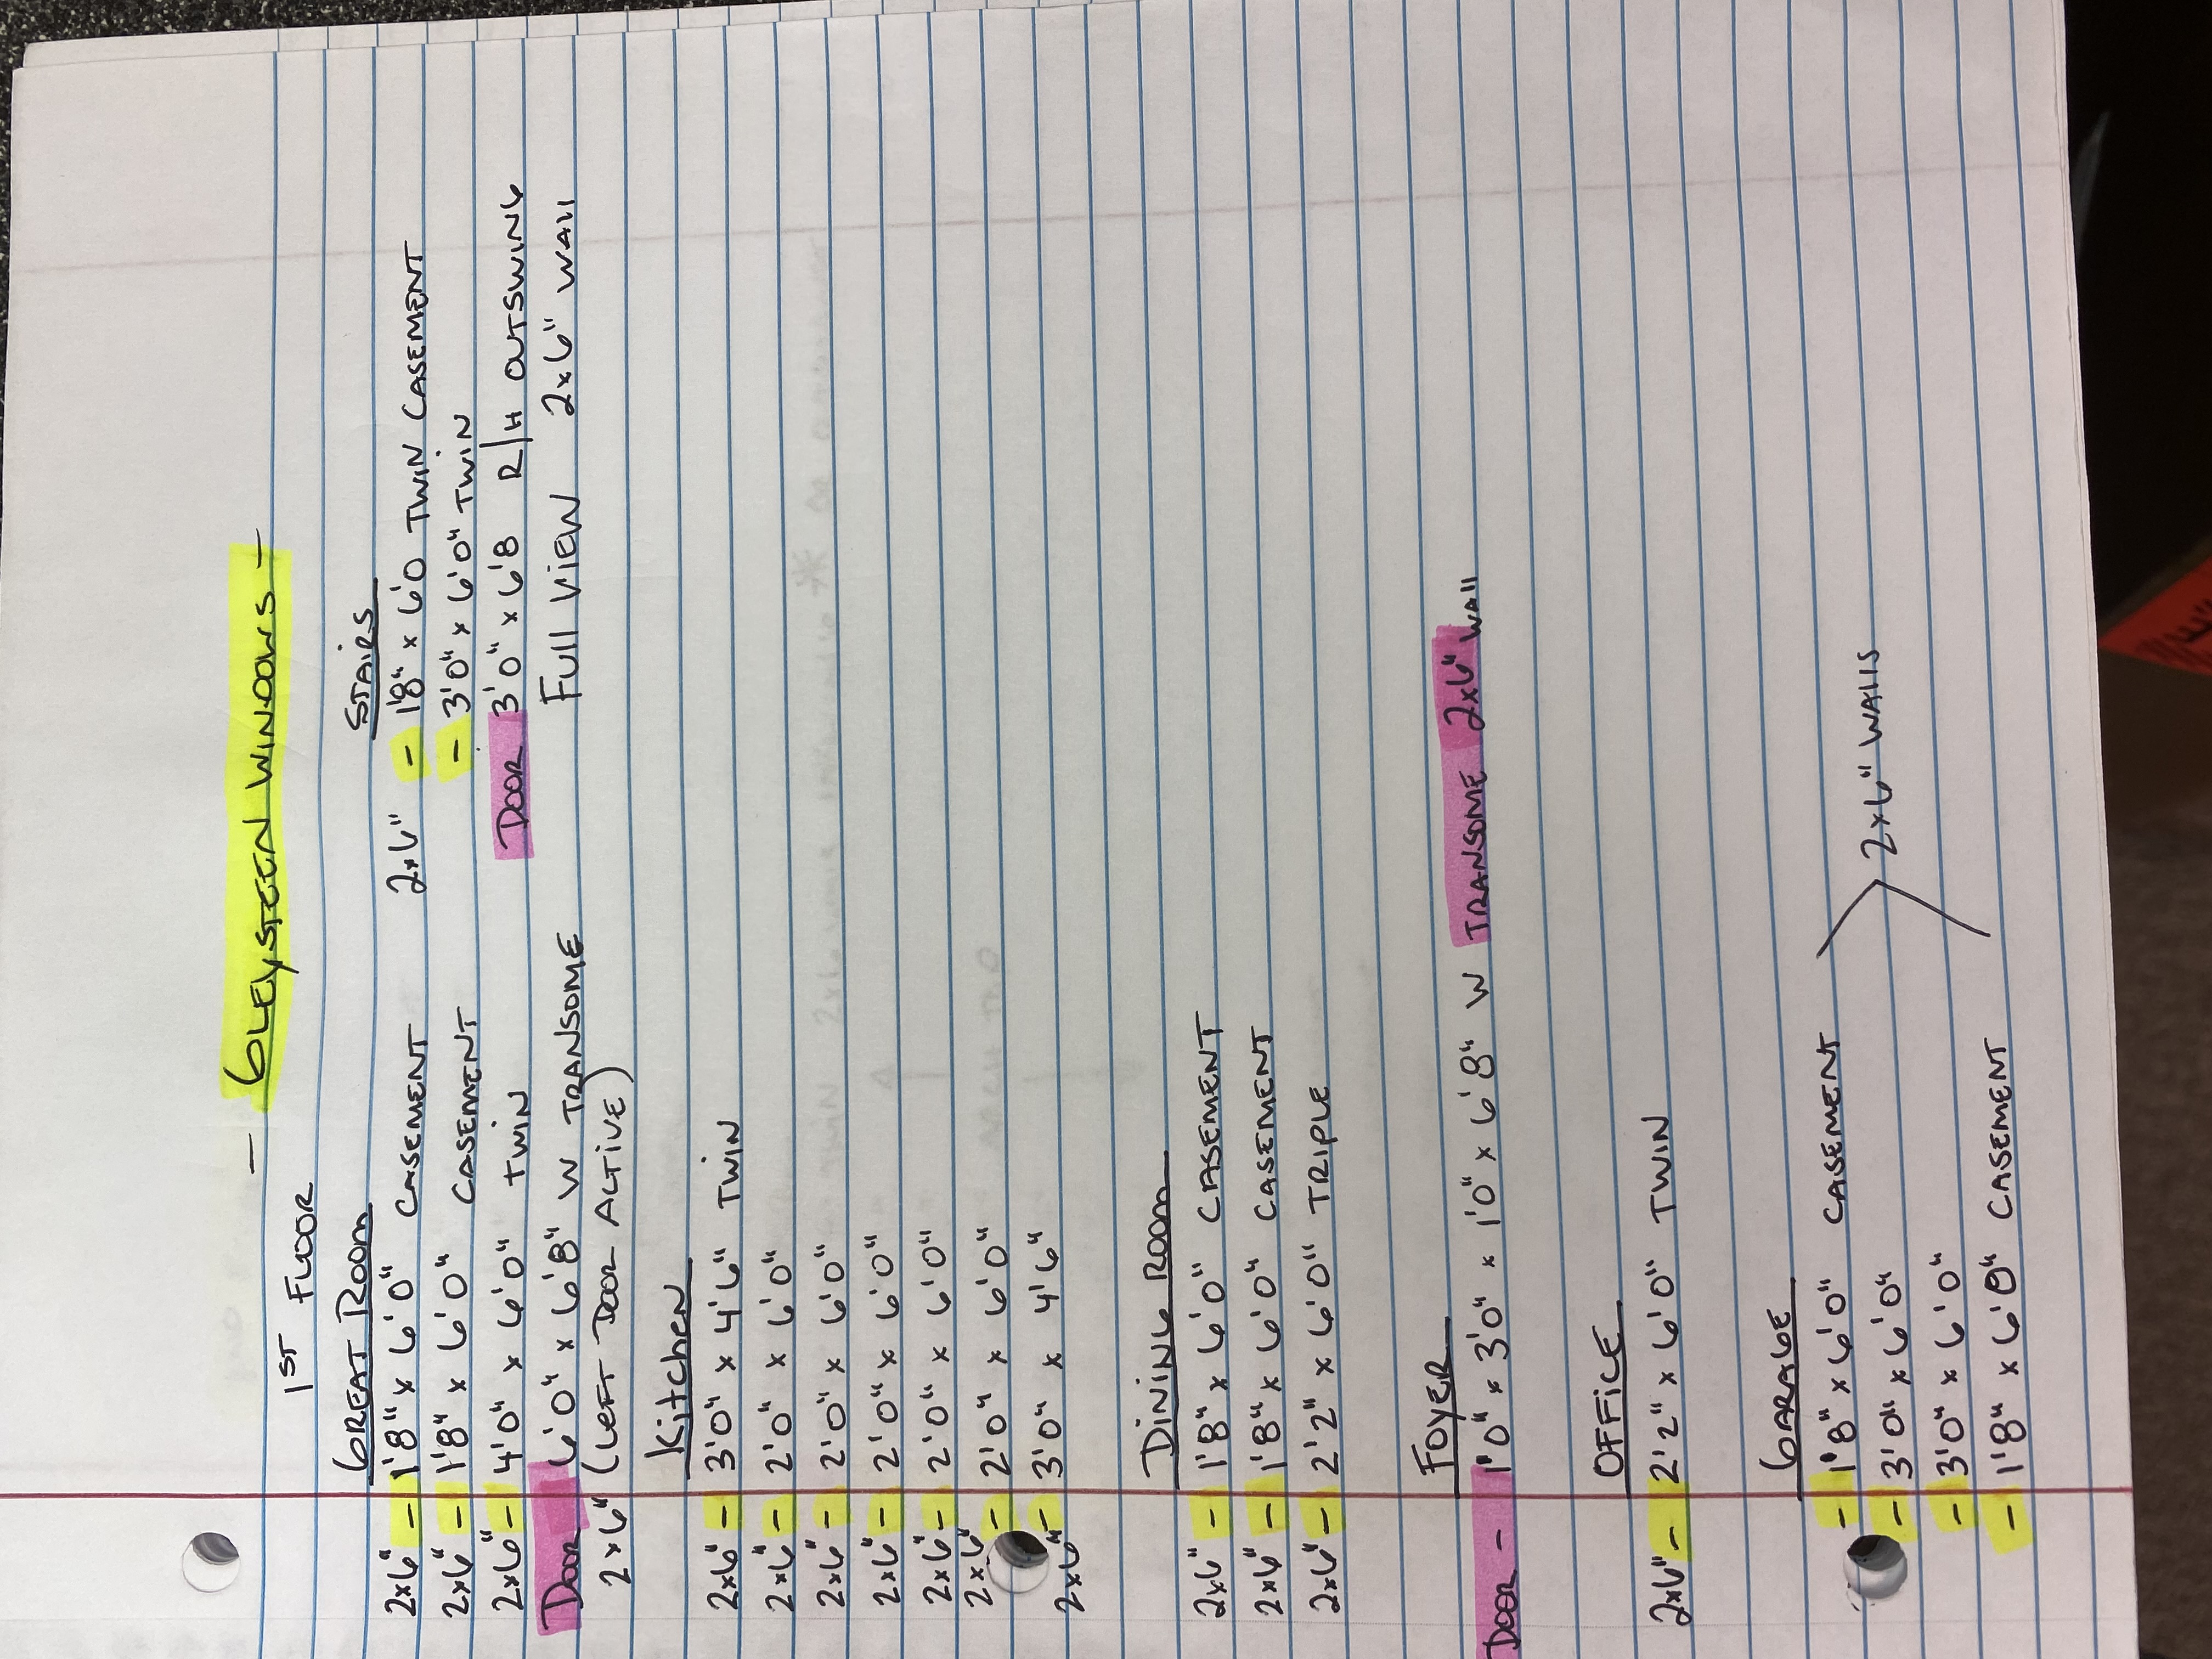 — GLEYSTEEN WINDOWS —
1ST FLOOR
GREAT ROOM
2x6" - 1'8" x 6'0" CASEMENT
2x6" - 1'8" x 6'0" CASEMENT
2x6" - 4'0" x 6'0" TWIN
DOOR 6'0" x 6'8" W TRANSOME
2x6" (LEFT DOOR ACTIVE)
STAIRS
2x6" - 1'8" x 6'0 TWIN CASEMENT
- 3'0" x 6'0" TWIN
DOOR 3'0" x 6'8 R/H OUTSWING
FULL VIEW 2x6" WALL
KITCHEN
2x6" - 3'0" x 4'6" TWIN
2x6" - 2'0" x 6'0"
2x6" - 2'0" x 6'0"
2x6" - 2'0" x 6'0"
2x6" - 2'0" x 6'0"
2x6" - 2'0" x 6'0"
2x6" - 3'0" x 4'6"
DINING ROOM
2x6" - 1'8" x 6'0" CASEMENT
2x6" - 1'8" x 6'0" CASEMENT
2x6" - 2'2" x 6'0" TRIPLE
FOYER
DOOR - 1'0" x 3'0" x 1'0" x 6'8" W TRANSOME 2x6" WALL
OFFICE
2x6" - 2'2" x 6'0" TWIN
GARAGE
- 1'8" x 6'0" CASEMENT
- 3'0" x 6'0"
- 3'0" x 6'0"
- 1'8" x 6'0" CASEMENT
2x6" WALLS